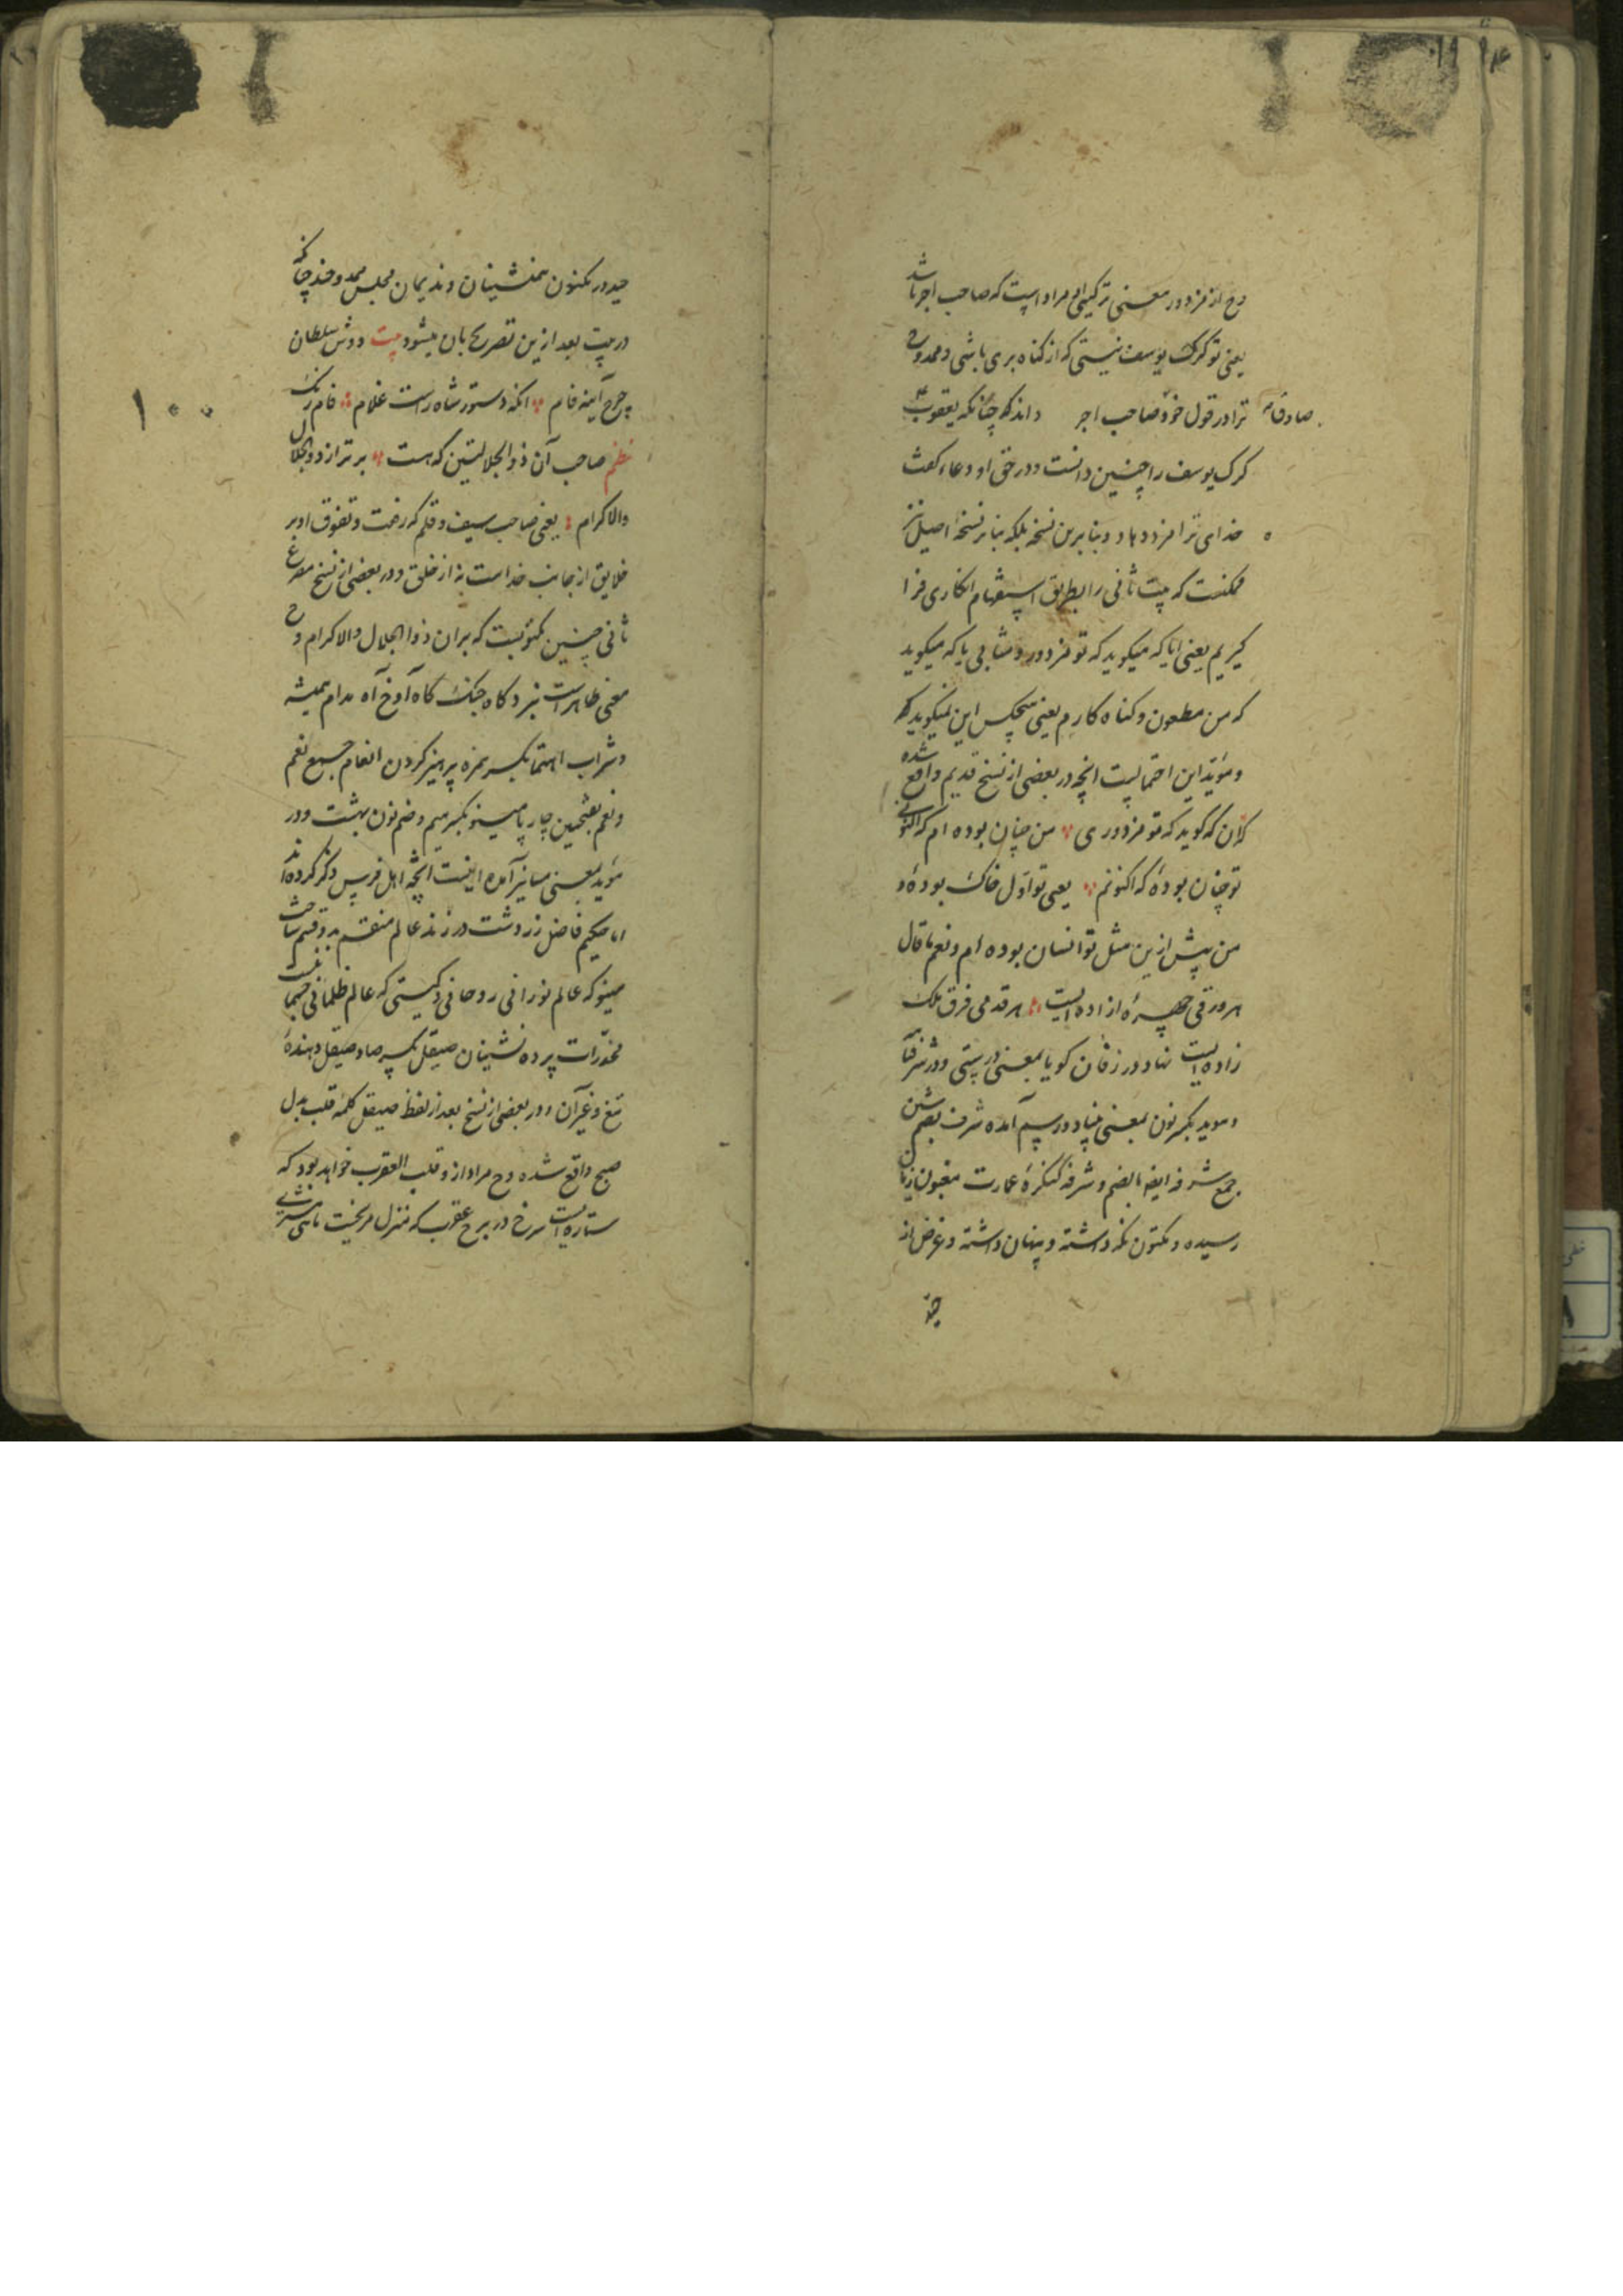 وح از مزدور معنی ترکیبی مراد است که صاحب اجر باشد
یعنی تو گرگ یوسف نیستی که از کناه بری باشی و ممدوح
ترا در قول خود صاحب اجر داند که چنانکه یعقوب
صادقا
کرک یوسف را چنین دانست و در حق او دعا کفت
خدای ترا مزد دهاد و بنابرین نسخه بلکه بنابر نسخهٔ اصیل نیز
ممکنست که بیت ثانی را بطریق استفهام انکاری فرا
کیریم یعنی ایا که میکوید که تو مزدور و مثابی یا که میکوید
که من مطعون و کناه کارم یعنی هیچکس این نمیکوید که
و مؤید این احتمالیست انچه در بعضی از نسخ قدیم واقع شده
کان که کوید که تو مزدوری من چنان بوده ام که اکنونی
تو چنان بودهٔ که اکنونم یعنی تو اول خاک بودهٔ و
من پیش ازین مثل تو انسان بوده ام و نعم ما قال
هر ورقی چهرهٔ ازاده ایست هر قدمی فرق ملک
زاده ایست نهاد در زفان کویا بمعنی درستی و در شرفنامه
و موید بکسر نون بمعنی بنیاد و رسم آمده شرف بضم شین
جمع شرفه ایضا بالضم و شرفه کنکرهٔ عمارت مغبون زیان
رسیده و مکنون نکه داشته و پنهان داشته و غرض از
حید
حیدور مکنون همنشینان و ندیمان مجلس ممدوحند چنانکه
در بیت بعد ازین تصریح بان میشود بیت دوش سلطان
چرخ آینه فام انکه دستور شاه راست غلام فام رنک
نظم صاحب آن ذوالجلالتین که هست برتر از ذوالجلال
والاکرام یعنی صاحب سیف و قلم که رفعت و تفوق او بر
خلایق از جانب خداست نه از خلق و در بعضی از نسخ مصرع
ثانی چنین مکتوبست که بران ذوالجلال والاکرام و ح
معنی ظاهر است نبرد کاه جنک کاه آوخ آه مدام همیشه
و شراب احتما بکسر همزه پرهیز کردن انعام جمع نعم
و نعم بفتحین چارپا مینو بکسر میم و ضم نون بهشت و در
موید بمعنی مینا نیز آمده اینست انچه اهل فرس ذکر کرده اند
اما حکیم فاضل زردشت در زند عالم منقسم بدو قسم ساخت
مینو که عالم نورانی روحانی و کیتی که عالم ظلمانی جسمانیست
مخدرات پرده نشینان صیقل بکسر صاد صیقل دهندهٔ
تیغ و غیر آن و در بعضی از نسخ بعد از لفظ صیقل کلمهٔ قلب بدل
صبح واقع شده و ح مراد از و قلب العقرب خواهد بود که
ستاره ایست سرخ در برج عقرب که منزل مریخست
۱۰۰